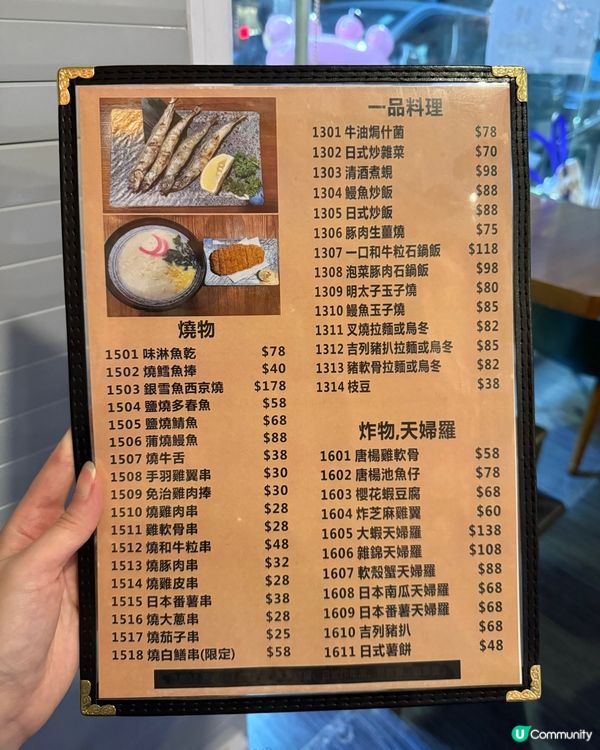 一品料理
1301 牛油焗什菌 $78
1302 日式炒雜菜 $70
1303 清酒煮蜆 $98
1304 鰻魚炒飯 $88
1305 日式炒飯 $88
1306 豚肉生薑燒 $75
1307 一口和牛粒石鍋飯 $118
1308 泡菜豚肉石鍋飯 $98
1309 明太子玉子燒 $80
1310 鰻魚玉子燒 $85
1311 叉燒拉麵或烏冬 $82
1312 吉列豬扒拉麵或烏冬 $85
1313 豬軟骨拉麵或烏冬 $82
1314 枝豆 $38
燒物
1501 味淋魚乾 $78
1502 燒鱈魚捧 $40
1503 銀雪魚西京燒 $178
1504 鹽燒多春魚 $58
1505 鹽燒鯖魚 $68
1506 蒲燒鰻魚 $88
1507 燒牛舌 $38
1508 手羽雞翼串 $30
1509 免治雞肉捧 $30
1510 燒雞肉串 $28
1511 雞軟骨串 $28
1512 燒和牛粒串 $48
1513 燒豚肉串 $32
1514 燒雞皮串 $28
1515 日本番薯串 $38
1516 燒大蔥串 $28
1517 燒茄子串 $25
1518 燒白鱔串(限定) $58
炸物,天婦羅
1601 唐楊雞軟骨 $58
1602 唐楊池魚仔 $78
1603 櫻花蝦豆腐 $68
1604 炸芝麻雞翼 $60
1605 大蝦天婦羅 $138
1606 雜錦天婦羅 $108
1607 軟殼蟹天婦羅 $88
1608 日本南瓜天婦羅 $68
1609 日本番薯天婦羅 $68
1610 吉列豬扒 $68
1611 日式薯餅 $48
U Community